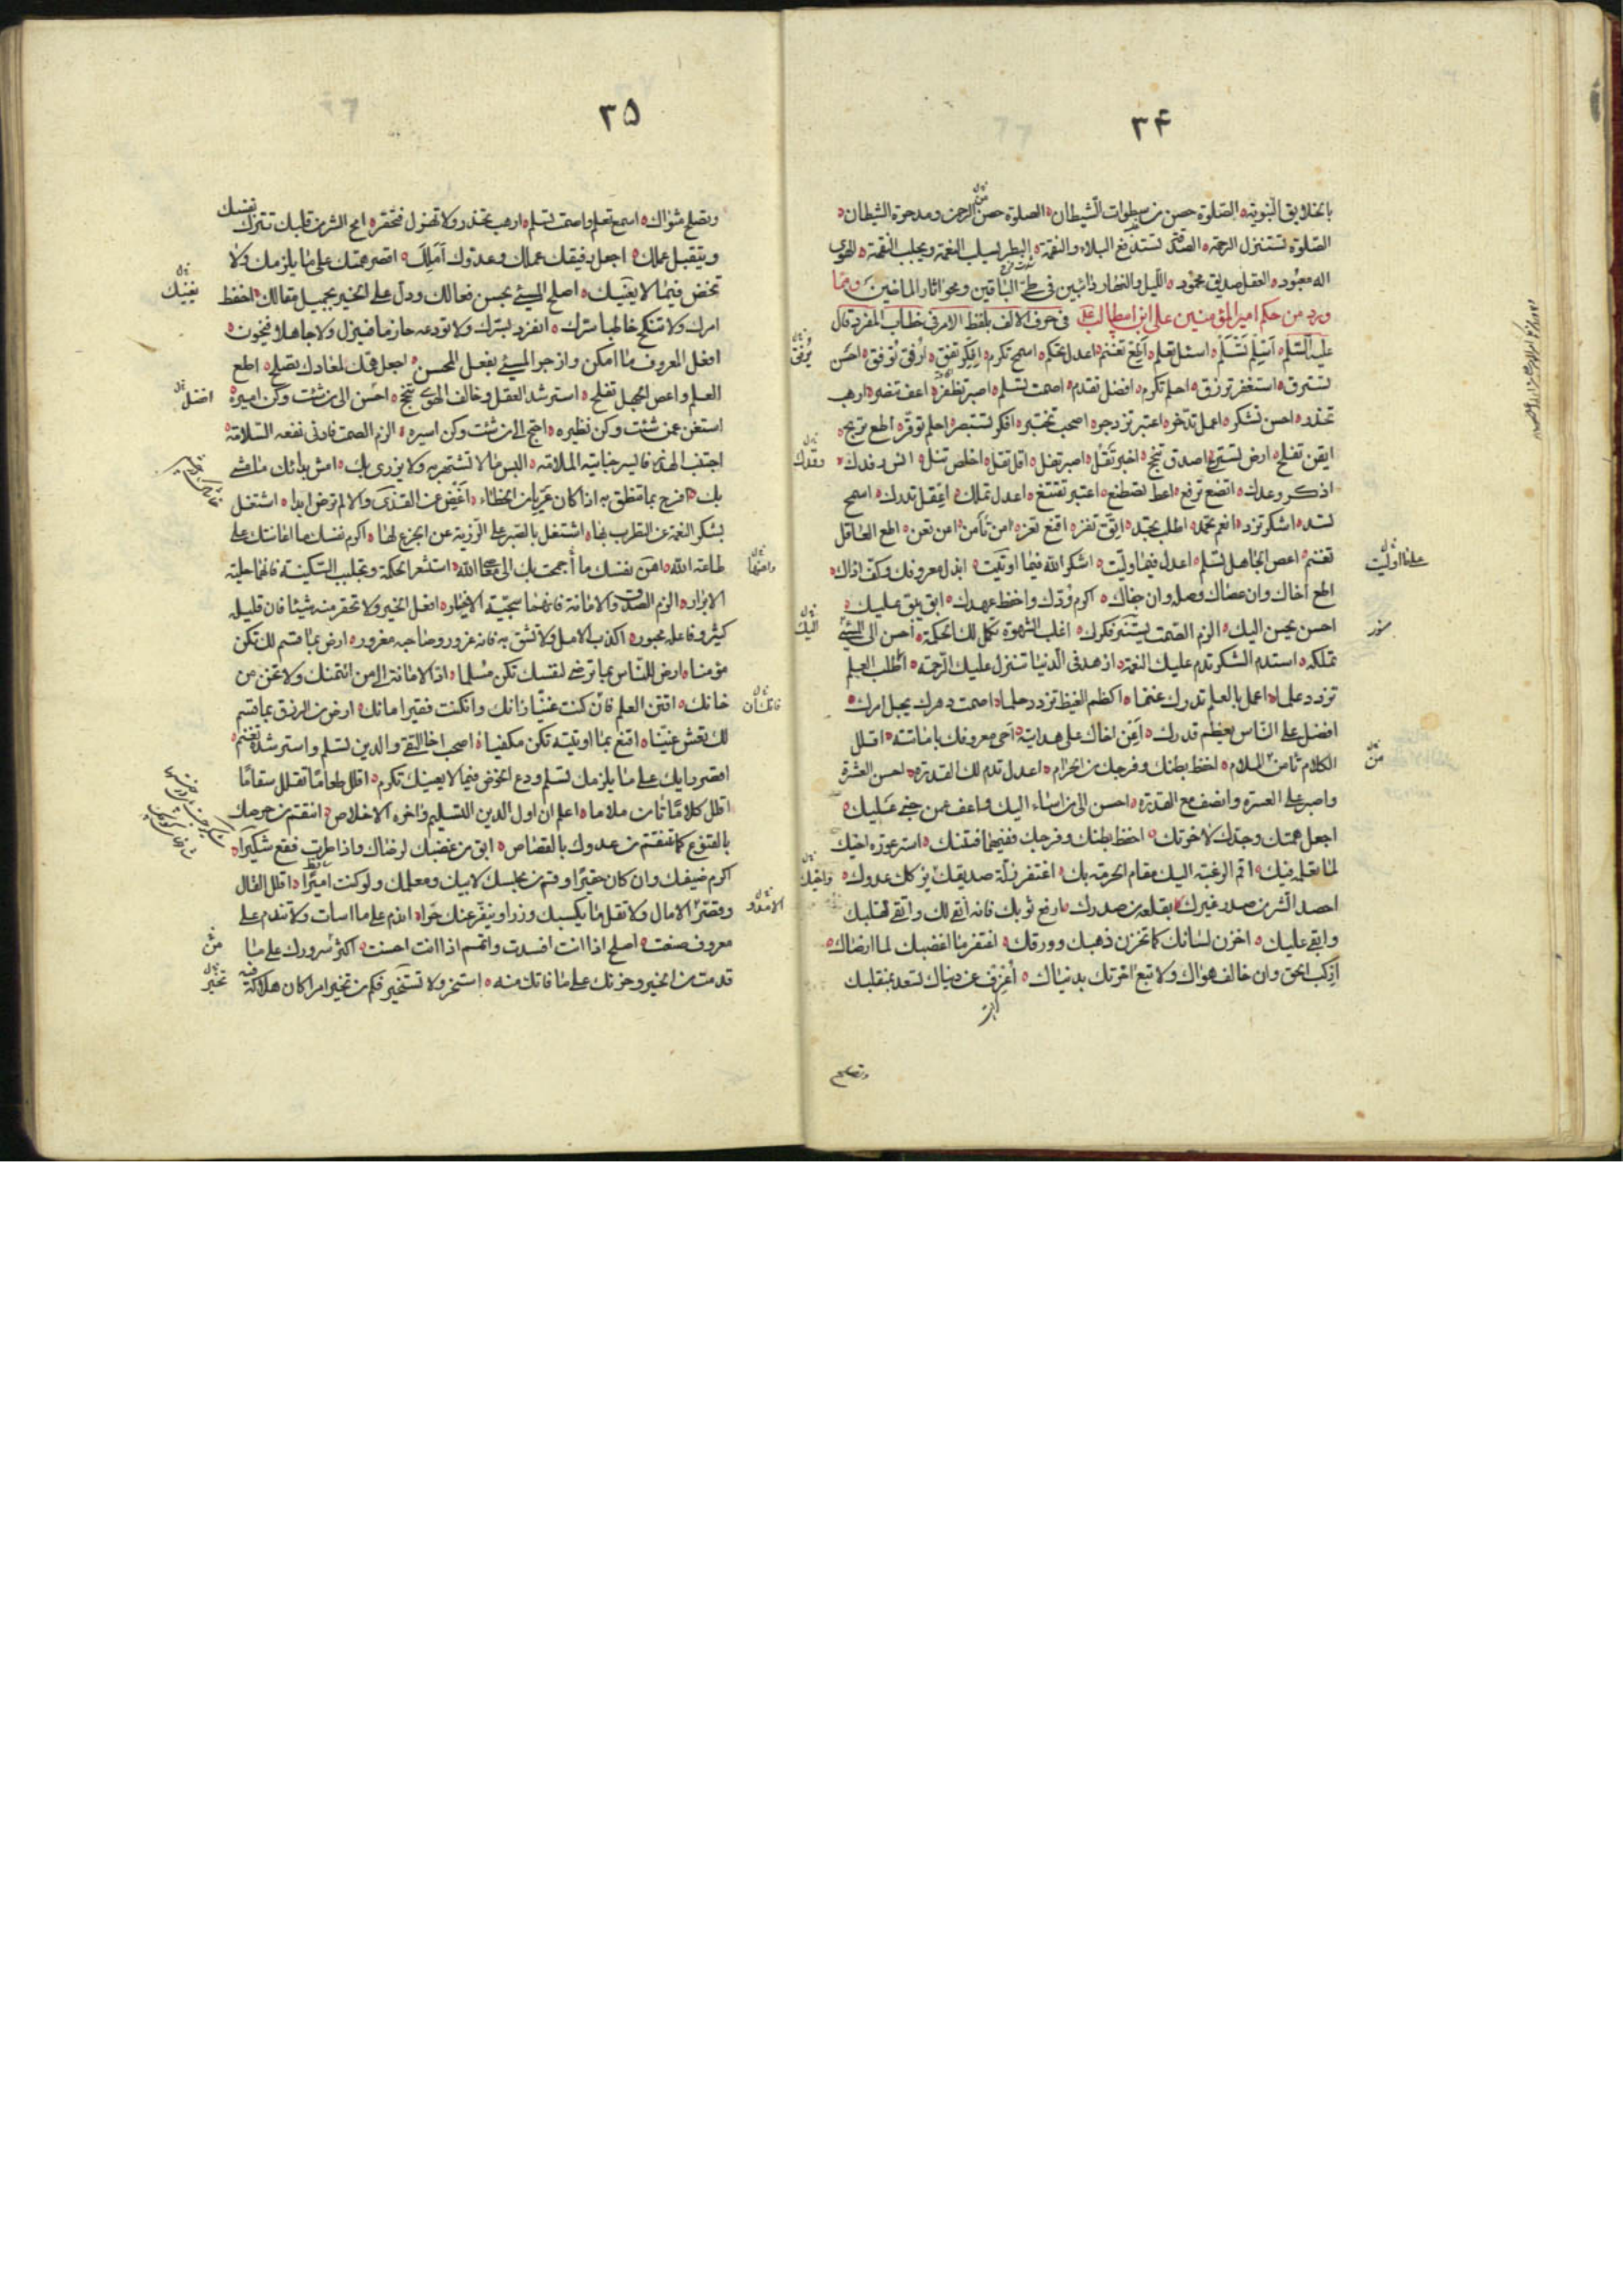 ۳۴
بالخلایق النبویة الصلوة حصن من سطوات الشیطان الصلوة حصن الرحمن ومدحرة الشیطان
الصلوة تستنزل الرحمة الصدقة تستدفع البلاء والنقمة البطر یسلب النعمة ویجلب النقمة الهوی
اله معبود العقل صدیق محمود اللیل والنهار دائبین فی طی الباقین ومحو اثار الماضین ومما
ورد من حکم امیر المؤمنین علی ابن ابیطالب فی حرف الالف بلفظ الامر فی خطاب المفرد قال
علیه السلم اسلم تسلم اسئل تعلم اطع تغنم اعدل تحکم اسمح تکرم افکر تفق ارفق توفق احسن
تسترق استغفر ترزق احلم تکرم افضل تقدم اصمت تسلم اصبر تظفر اعف تنصر ارهب
تحذر احسن تشکر اعمل تدخر اعتبر تزدجر اصحب تختبر افکر تستبصر احلم توقر اطع تربح
ایقن تفلح ارض تسترح اصدق تنجح اخبر تقل اصبر تنل اقل تقل اخلص تنل انس رفدك
اذکر وعدك اتضع ترفع اعط تصطنع اعتبر تقتنع اعدل تملك اعقل تدرك اسمح
تسد اشکر تزد انعم تحمد اطلب تجد اتق تفز اقنع تعز امن تأمن اعن تعن اطع العاقل
تغنم اعص الجاهل تسلم اعدل فیما ولیت اشکر الله فیما اوتیت ابذل معروفك وکف اذاك
اطع اخاك وان عصاك وصله وان جفاك اکرم ودك واحفظ عهدك ابق یبق علیك
احسن یحسن الیك الزم الصمت یستنر فکرك اغلب الشهوة تکمل لك الحکمة احسن الی المسئ
تملکه استدم الشکر تدم علیك النعمة ازهد فی الدنیا تنزل علیك الرحمة اطلب العلم
تزدد علما اعمل بالعلم تدرك غنما اکظم الغیظ تزدد حلما اصمت دهرك یجل امرك
افضل علی الناس یعظم قدرك اعن اخاك علی هدایته احی معروفك باماتته اقلل
الکلام تامن الملام احفظ بطنك وفرجك من الحرام اعدل تدم لك القدرة احسن العشرة
واصبر علی العسرة وانصف مع القدرة احسن الی من اساء الیك واعف عمن جنی علیك
اجعل همتك وجدك لاخرتك احفظ بطنك وفرجك ففیهما فتنتك استر عورة اخیك
لما یعلمه فیك اقم الرغبة الیك مقام الحرمة بك اغتفر زلة صدیقك یزکك عدوك
احصد الشر من صدر غیرك بقلعه من صدرك ارفع ثوبك فانه انقی لك واتقی لقلبك
وابقی علیك اخزن لسانك کما تخزن ذهبك وورقك اغتفر ما اغضبك لما ارضاك
ارکب الحق وان خالف هواك ولا تبع اخرتك بدنیاك اعزف عن دنیاك تسعد بمنقلبك
وتصلح
۳۵
وتصلح مثواك اسمع تعلم واصمت تسلم ارهب تحذر ولا تهزل فتحقر امح الشر من قلبك تتزك نفسك
ویتقبل عملك اجعل رفیقك عملك وعدوك املك اقصر همتك علی ما یلزمك ولا
تخض فیما لا یعنیك اصلح المسئ بحسن فعالك ودل علی الخیر بجمیل مقالك احفظ
امرك ولا تنکح خاطبا سرك انفرد بسرك ولا تودعه حازما فیزل ولا جاهلا فیخون
افعل المعروف ما امکن وازجر المسئ بفعل المحسن اجعل همك لمعادك تصلح اطع
العلم واعص الجهل تفلح استرشد العقل وخالف الهوی تنجح احسن الی من شئت وکن امیره
استغن عمن شئت وکن نظیره احتج الی من شئت وکن اسیره الزم الصمت فادنی نفعه السلامة
اجتنب الهذر فایسر جنایته الملامة البس ما لا تشتهر به ولا یزری بك امش بدائك ما مشی
بك افرح بما تنطق به اذا کان عریا من الخطاء اغض عن القذی والا لم ترض ابدا اشتغل
بشکر النعمة عن الطرب بها اشتغل بالصبر علی الرزیة عن الجزع لها اکرم نفسك ما اعانتك علی
طاعة الله اهن نفسك ما اجمحت بك الی معاصی الله استشعر الحکمة وتجلبب السکینة فانها حلیة
الابرار الزم الصدق والامانة فانهما سجیة الاخیار افعل الخیر ولا تحقر منه شیئا فان قلیله
کثیر وفاعله محبور اکذب الامل ولا تثق به فانه غرور وصاحبه مغرور ارض بما قسم لك تکن
مؤمنا ارض للناس بما ترضی لنفسك تکن مسلما اد الامانة الی من ائتمنك ولا تخن من
خانك اقتن العلم فان کنت غنیا زانك وان کنت فقیرا مانك ارض من الرزق بما قسم
لك تعش غنیا اقنع بما اوتیته تکن مکفیا اصحب اخا التقی والدین تسلم واسترشده تغنم
اقصر رایك علی ما یلزمك تسلم ودع الخوض فیما لا یعنیك تکرم اقلل طعاما تقلل سقاما
اقلل کلاما تامن ملاما اعلم ان اول الدین التسلیم واخره الاخلاص انتقم من حرصك
بالقنوع کما تنتقم من عدوك بالقصاص ابق من غضبك لرضاك واذا طرت فقع شکیرا
اکرم ضیفك وان کان حقیرا وقم من مجلسك لابیك ومعلمك ولو کنت امیرا اقلل المقال
وقصر الامال ولا تقل ما یکسبك وزرا وینفر عنك حرا اندم علی ما اسات ولا تندم علی
معروف صنعت اصلح اذا انت افسدت واتمم اذا انت احسنت اکثر سرورك علی ما
قدمت من الخیر وحزنك علی ما فاتك منه استخر ولا تستخیر فکم من تخیر امرا کان هلاکه فیه